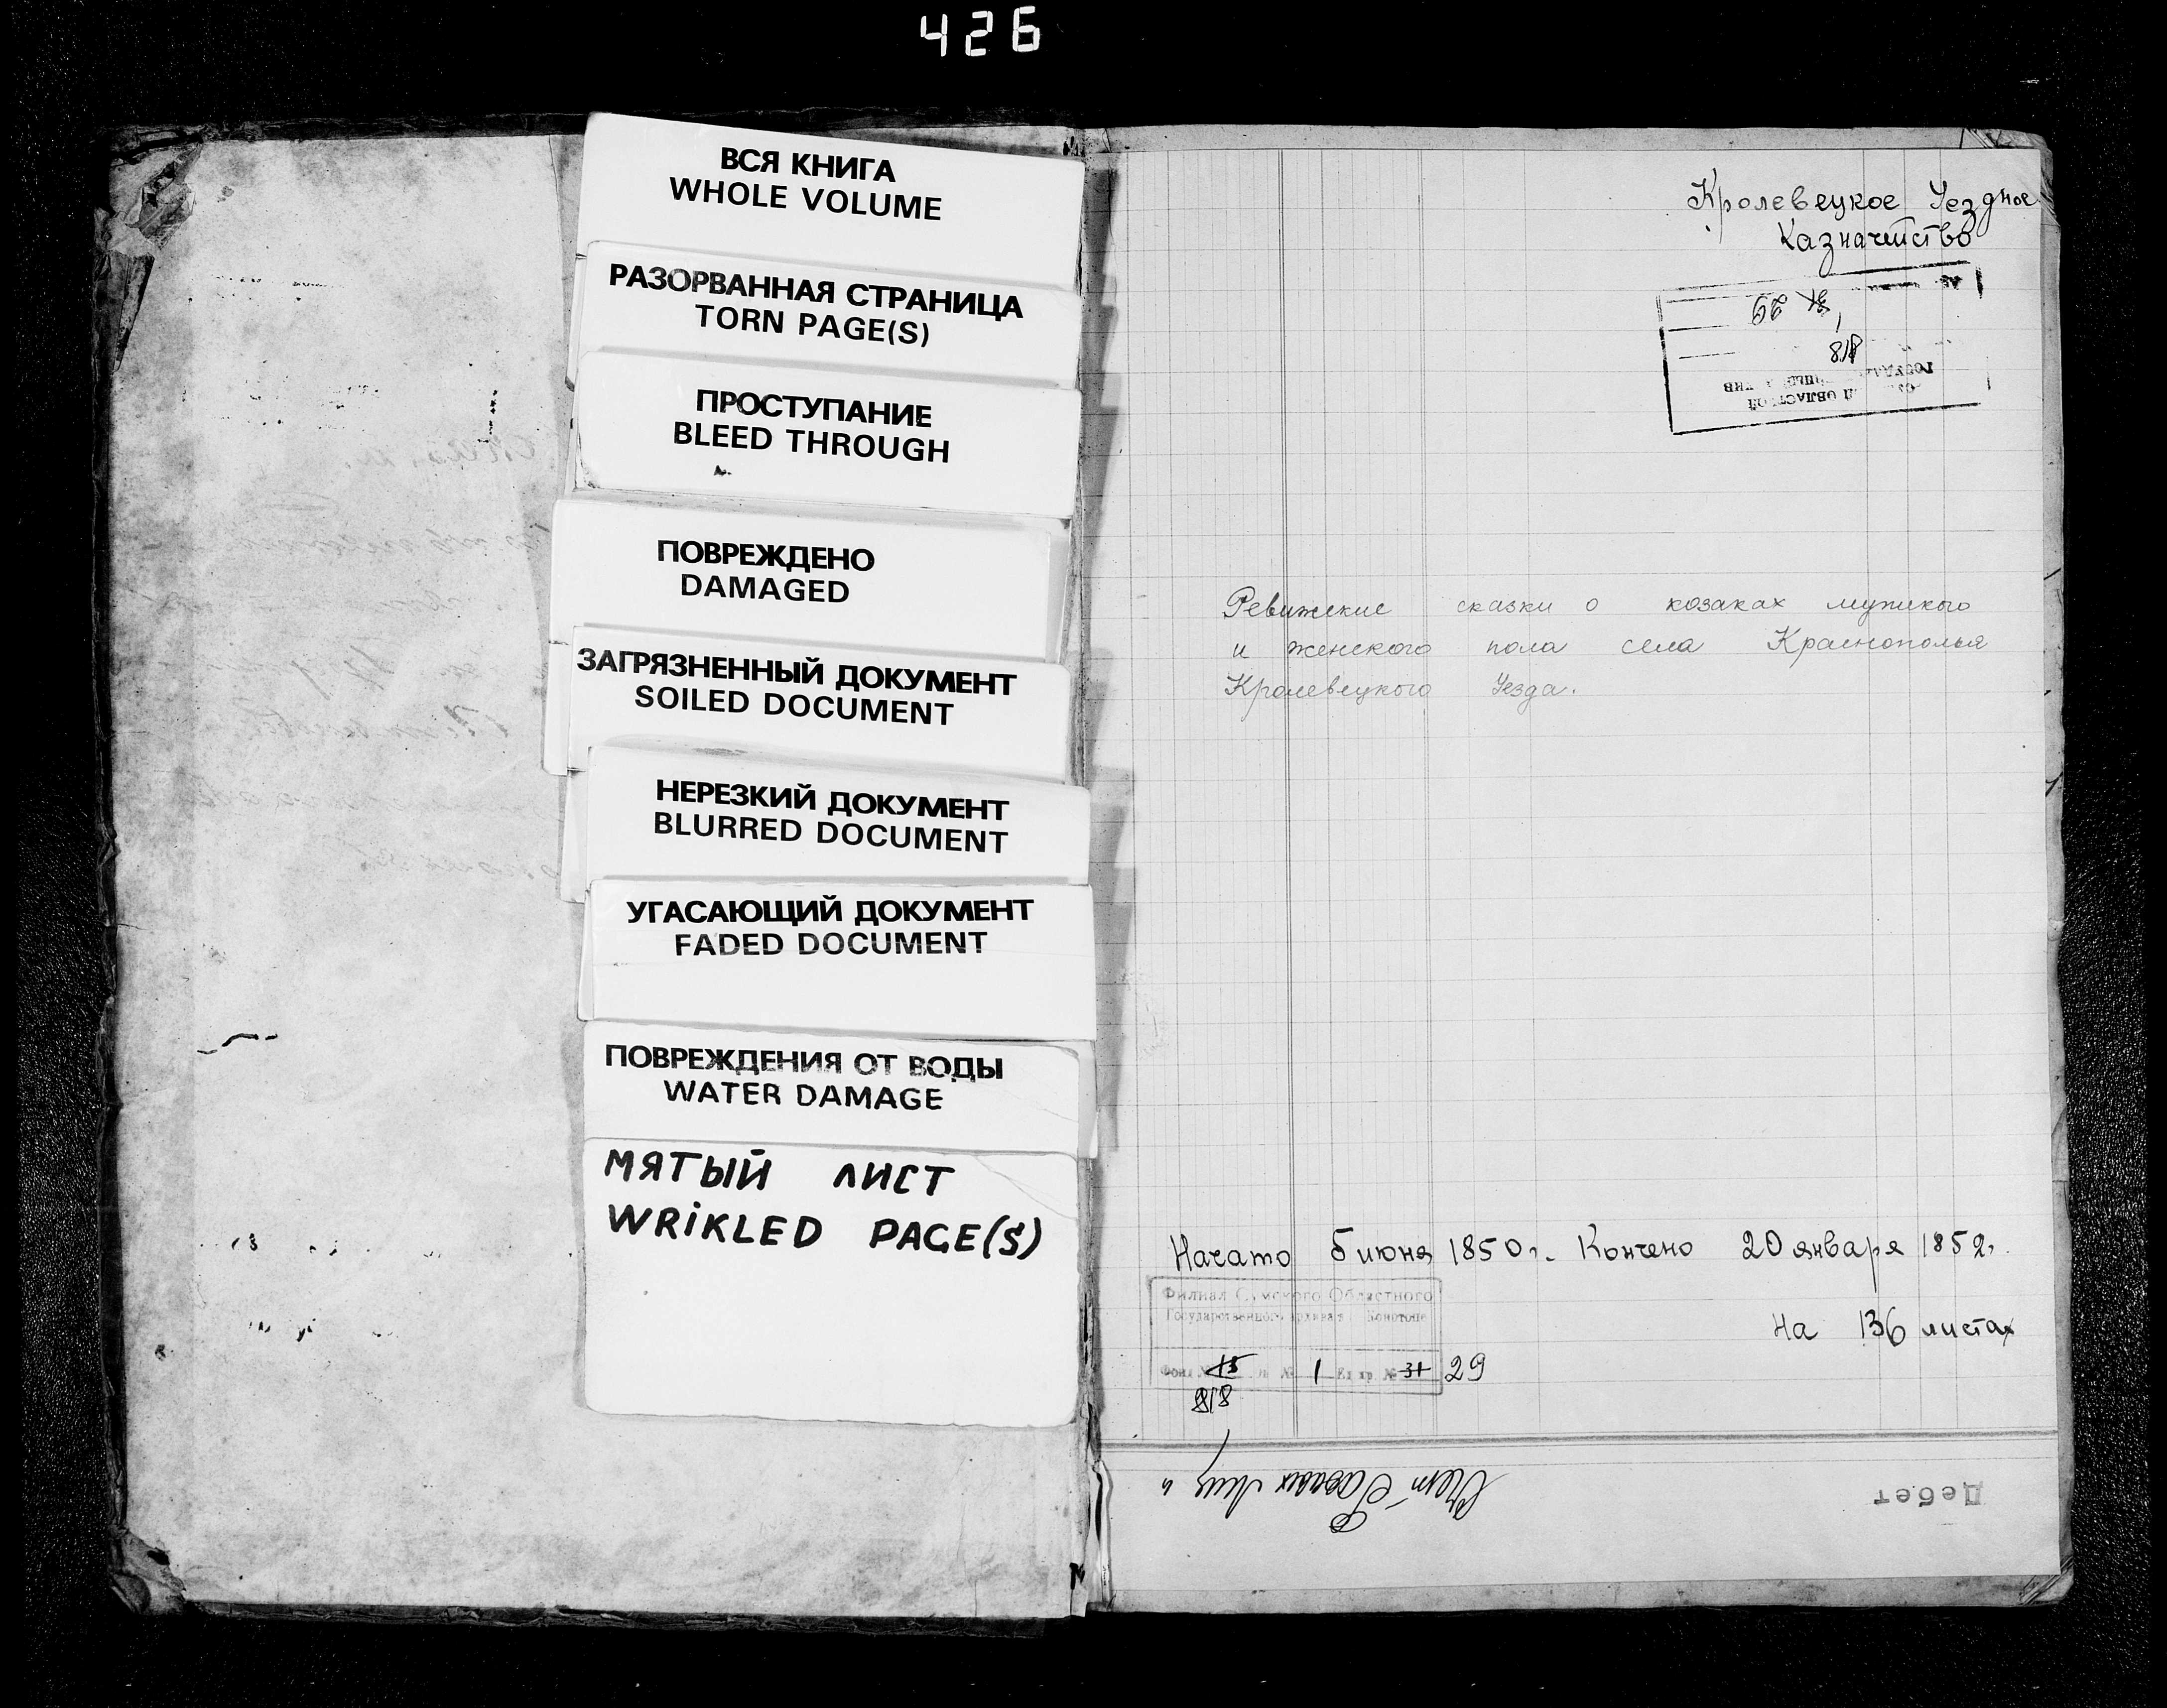 426
ВСЯ КНИГА
WHOLE VOLUME
РАЗОРВАННАЯ СТРАНИЦА
TORN PAGE(S)
ПРОСТУПАНИЕ
BLEED THROUGH
ПОВРЕЖДЕНО
DAMAGED
ЗАГРЯЗНЕННЫЙ ДОКУМЕНТ
SOILED DOCUMENT
НЕРЕЗКИЙ ДОКУМЕНТ
BLURRED DOCUMENT
УГАСАЮЩИЙ ДОКУМЕНТ
FADED DOCUMENT
ПОВРЕЖДЕНИЯ ОТ ВОДЫ
WATER DAMAGE
МЯТЫЙ ЛИСТ
WRIKLED PAGE(S)
Кролевецкое Уездное
Казначейство
29
818
Ревижские сказки о козаках мужского
и женского пола села Краснополья
Кролевецкого Уезда.
Начато 5 июня 1850 г. Кончено 20 января 1852 г.
На 136 листах
Филиал Сумского Областного
Государственного архива Конотопе
Фонд № 15 № 1 Ед хр. № 31 29
818
Счет
Дебет